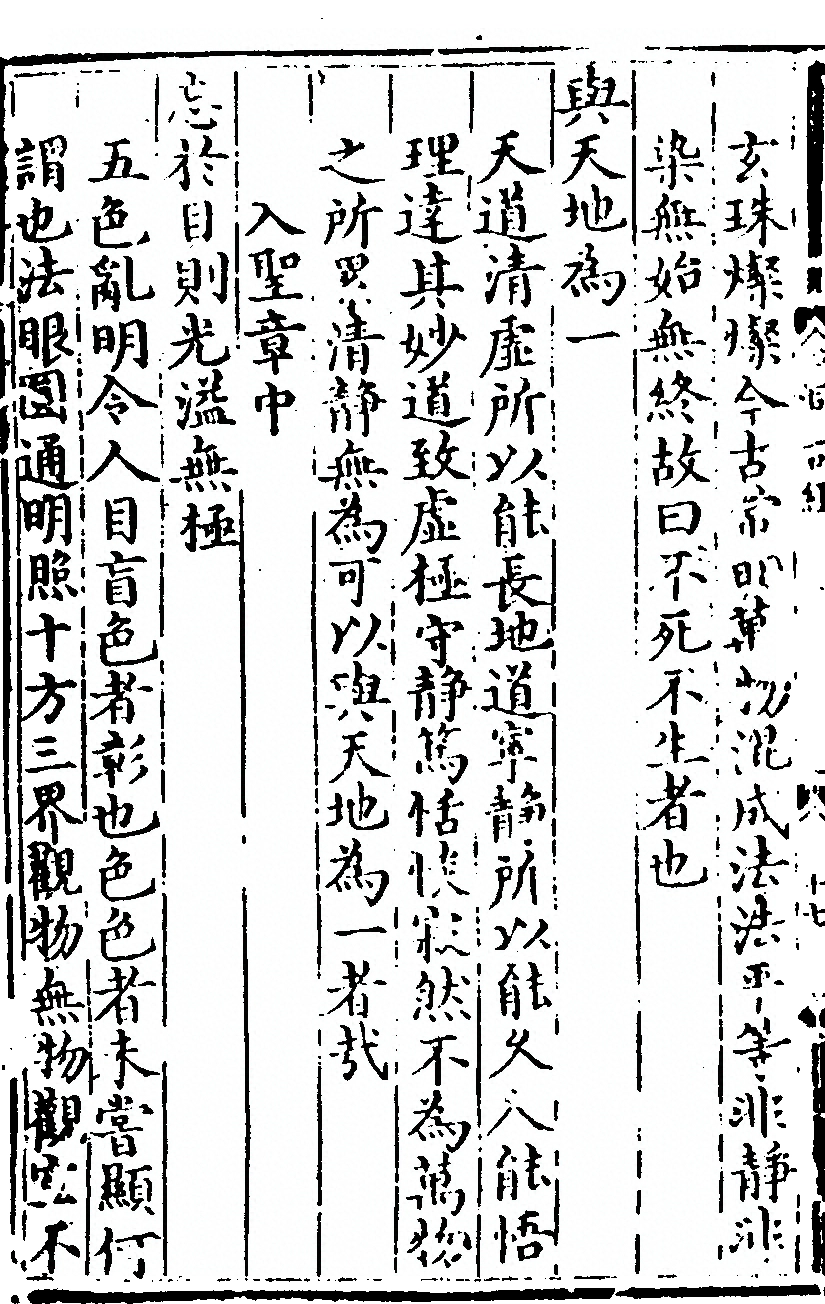 玄珠燦燦今古常明萬物混成法法平等非靜非
染無始無終故曰不死不生者也
與天地為一
天道清虛所以能長地道寧靜所以能久人能悟
理達其妙道致虛極守靜篤恬惔寂然不為萬物
之所累清靜無為可以與天地為一者哉
入聖章中
忘於目則光溢無極
五色亂明令人目盲色者彰也色色者未嘗顯何
謂也法眼圓通明照十方三界觀物無物觀空不
十七